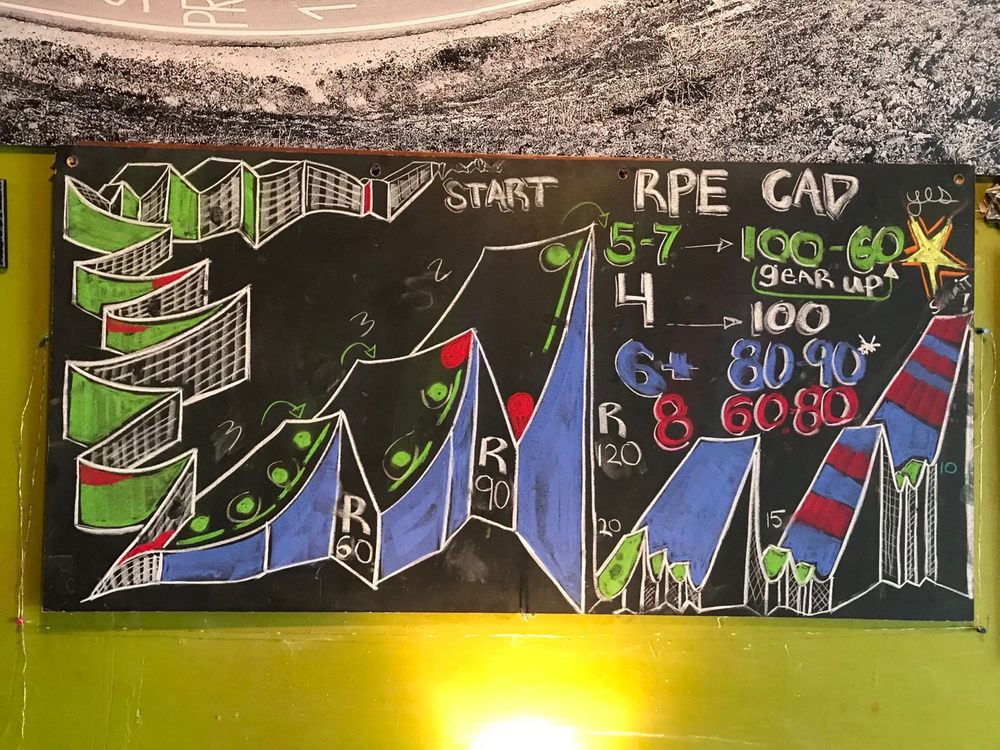 START
RPE CAD
yes
5-7 → 100-60
gEAR UP
4 → 100
6+ 80-90*
8 60-80
2
3
3
R
60
R
90
R
120
20
15
10